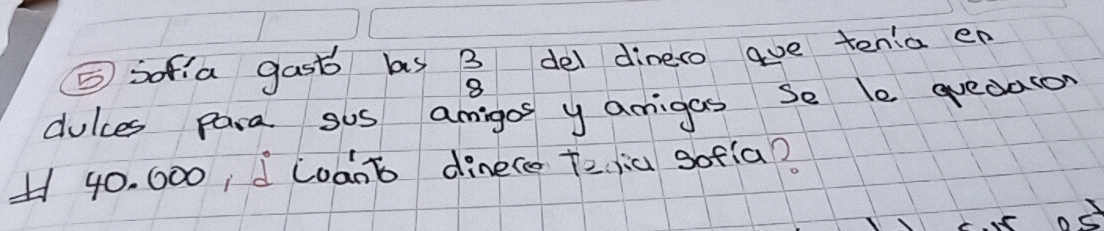 5 Sofía gastó las 3/8 del dinero que tenía en
dulces para sus amigos y amigas se le quedaron
# 40.000, ¿cuánto dinero tenía Sofía?